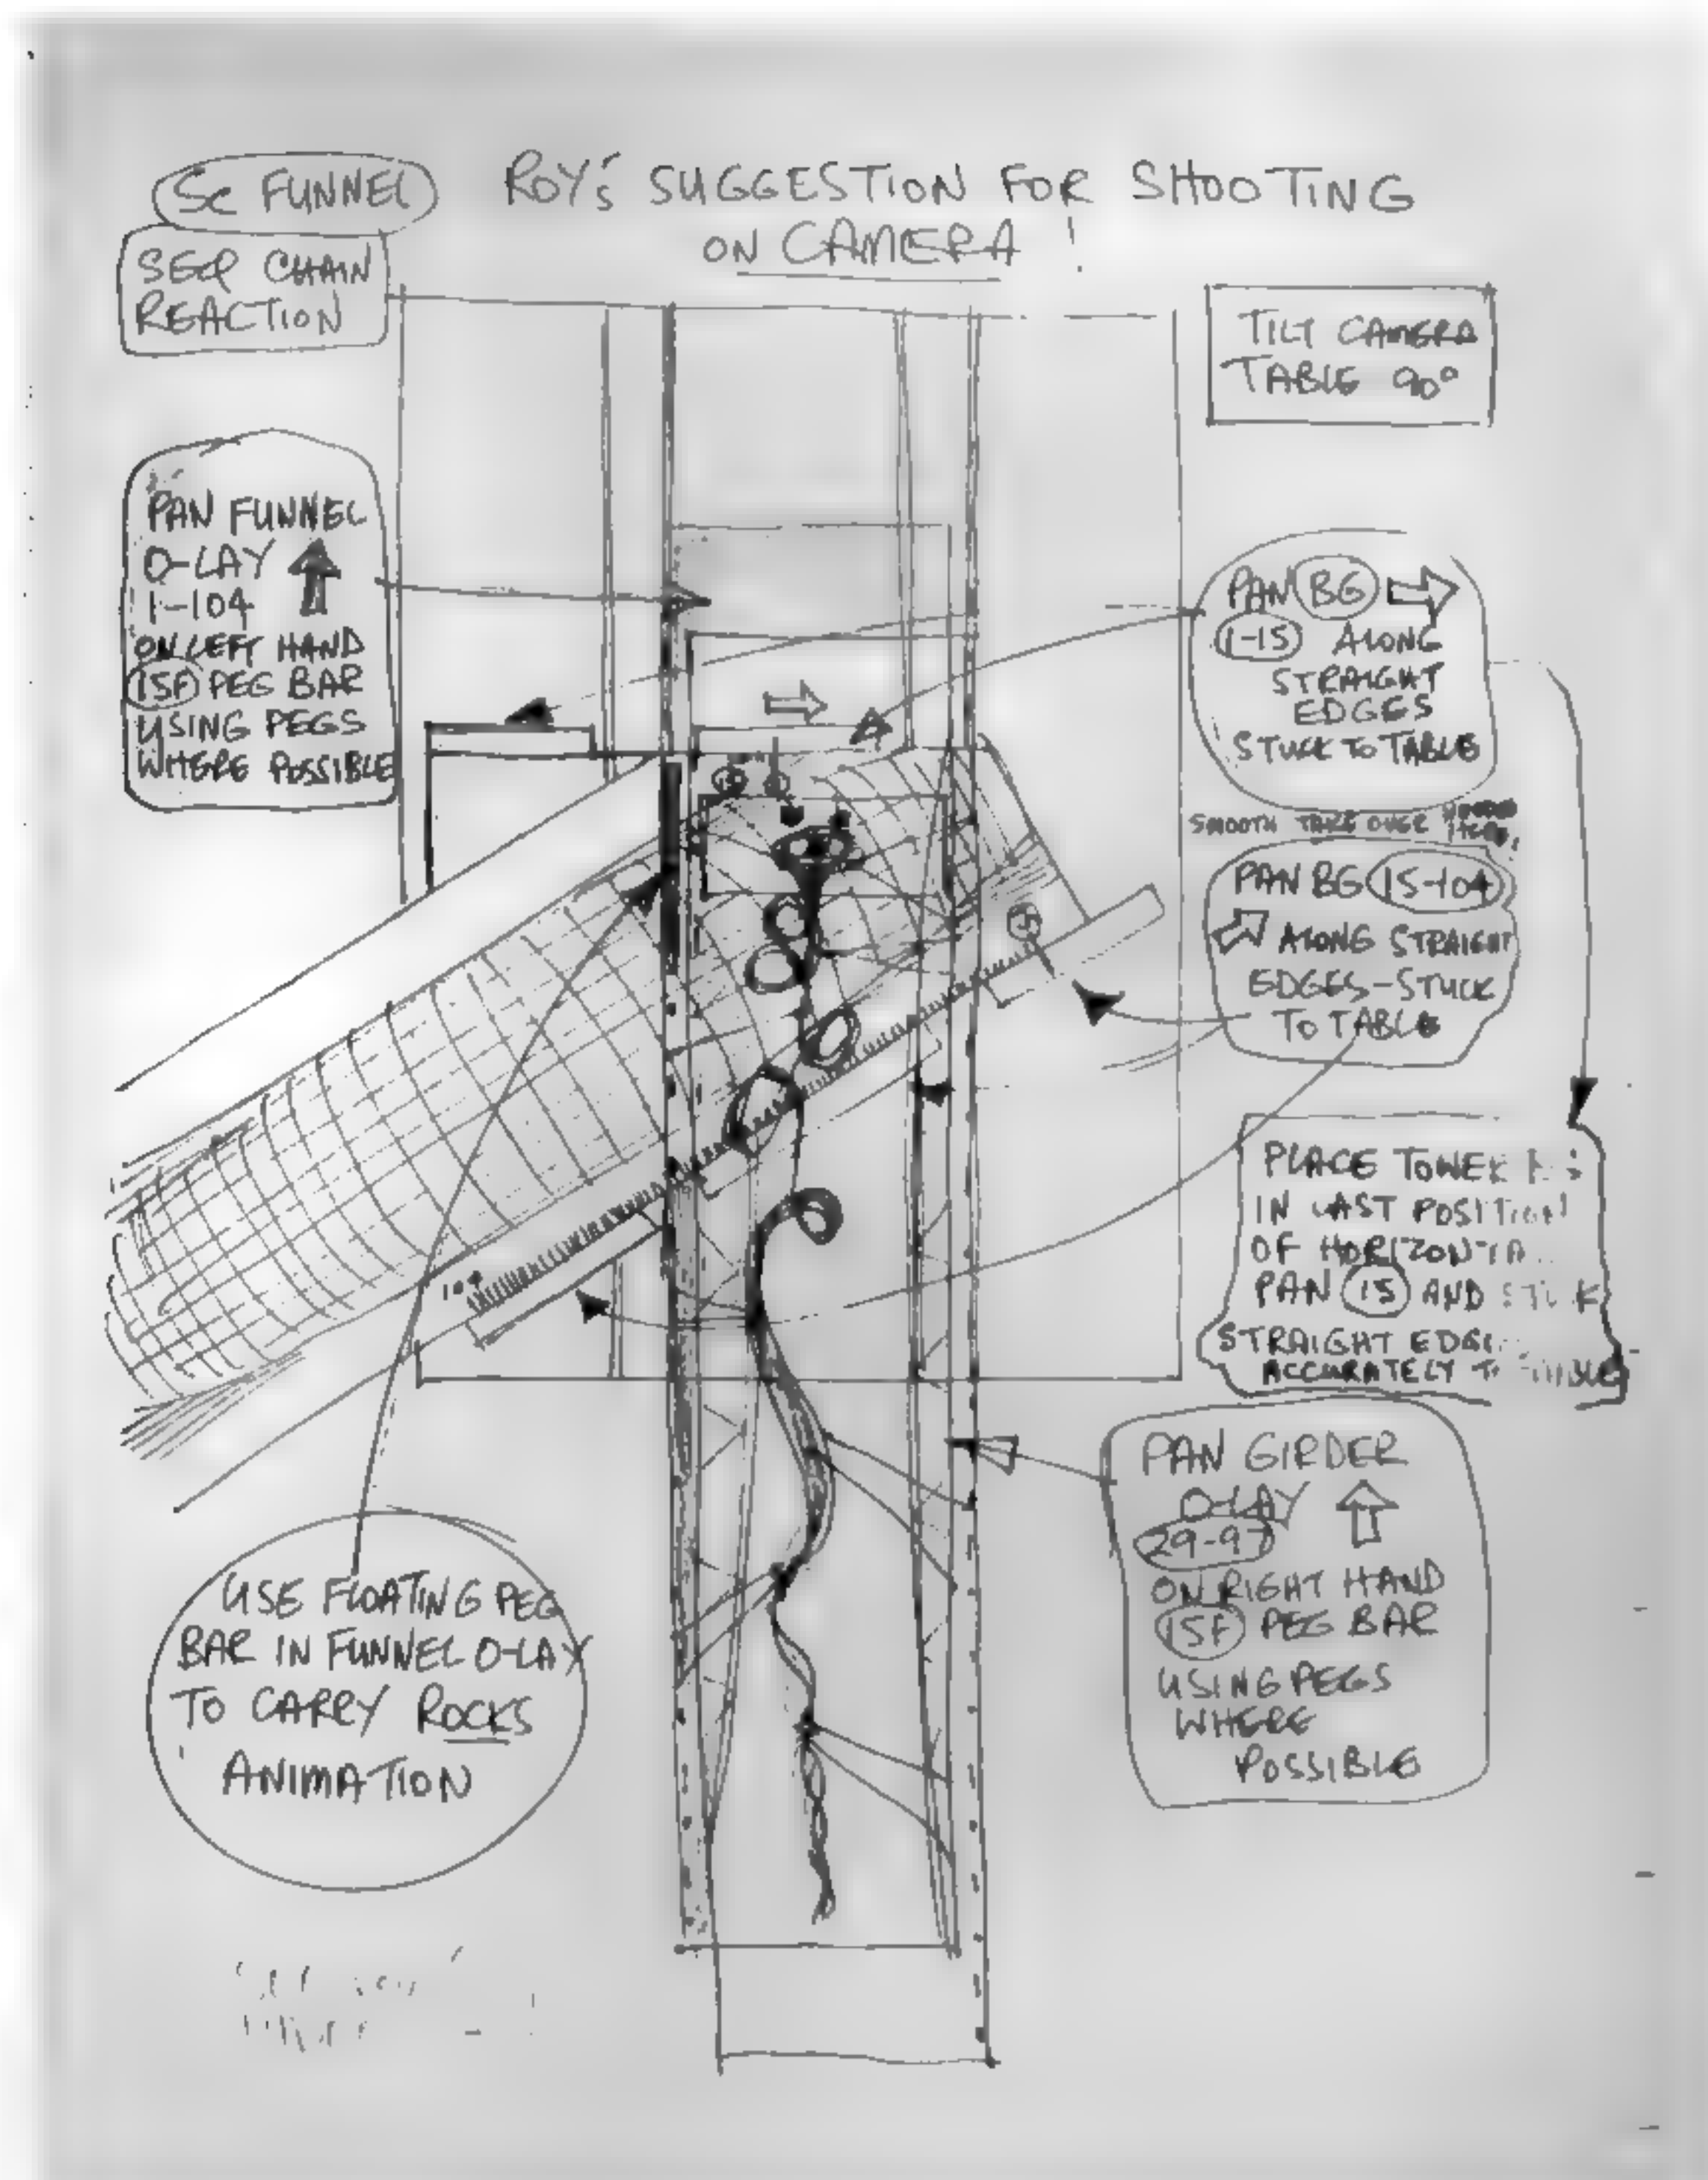 Sc FUNNEL
ROY's SUGGESTION FOR SHOOTING
ON CAMERA !
SEQ CHAIN
REACTION
TILT CAMERA
TABLE 90°
PAN FUNNEL
O-LAY
1-104
ON LEFT HAND
15F PEG BAR
USING PEGS
WHERE POSSIBLE
PAN BG
1-15 ALONG
STRAIGHT
EDGES
STUCK TO TABLE
SMOOTH TAKE OVER
PAN BG 15-104
ALONG STRAIGHT
EDGES-STUCK
TO TABLE
PLACE TOWER
IN LAST POSITION
OF
PAN 15 AND
STRAIGHT
ACCURATELY
104
PAN GIRDER
O-LAY
29-97
ON RIGHT HAND
15F PEG BAR
USING PEGS
WHERE
POSSIBLE
USE FLOATING PEG
BAR IN FUNNEL O-LAY
TO CARRY ROCKS
ANIMATION